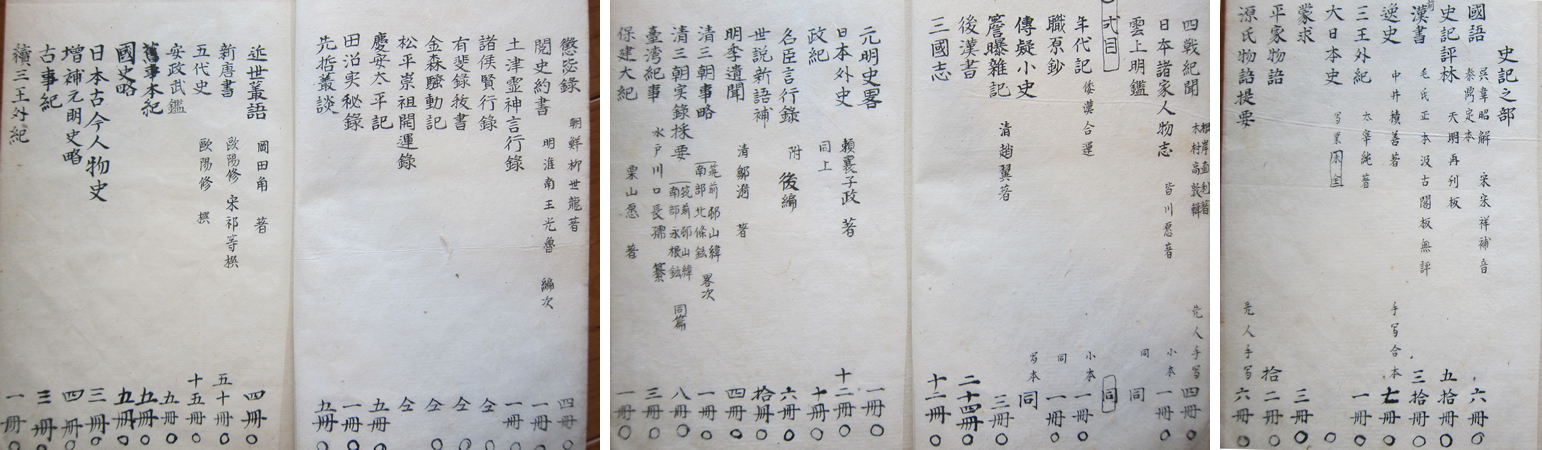 史記之部
國語 吳韋昭解 宋宋祥補音 六冊
秦鼎定本
史記評林 天明再刊板 五拾冊
漢書 毛氏正本汲古閣板無評 三拾冊
逸史 中井積善著 手写合本 七冊
三王外紀 太宰純著 一冊
大日本史 写業
蒙求 三冊
平家物語 拾二冊
源氏物語提要 先人手写 六冊
四戰紀聞 根岸直利著 木村高敦輯 先人手写 四冊
日本諸家人物志 皆川愿著 小本 一冊
雲上明鑑 同 同
弐目 同
年代記 倭漢合運 小本 一冊
職原鈔 同 一冊
傳疑小史 写本 同
簷曝雜記 清趙翼著 三冊
後漢書 二十四冊
三國志 十二冊
元明史畧 一冊
日本外史 賴襄子政著 十二冊
政紀 同上 十冊
名臣言行錄 附後編 六冊
世説新語補 拾冊
明季遺聞 清鄒漪著 四冊
清三朝事略 筑前邨山緯 南部北條鉉 畧次 一冊
清三朝実錄採要 筑前邨山緯 南部永根鉉 同篇 八冊
臺湾紀事 水戸川口長孺纂 三冊
保建大紀 栗山愿著 一冊
懲毖錄 朝鮮柳世龍著 四冊
閲史約書 明淮南王光魯編次 一冊
土津霊神言行錄 一冊
諸侯賢行錄 仝
有斐錄牧書 仝
金森騒動記 仝
松平崇祖開運錄 仝
慶安太平記 五冊
田沼実秘錄 一冊
先哲叢談 五冊
近世叢語 岡田角著 四冊
新唐書 歐陽修 宋祁等撰 五十冊
五代史 歐陽修撰 十五冊
安政武鑑 五冊
舊事本紀 五冊
國史略 五冊
日本古今人物史 三冊
増補元明史略 四冊
古事紀 三冊
續三王外紀 一冊